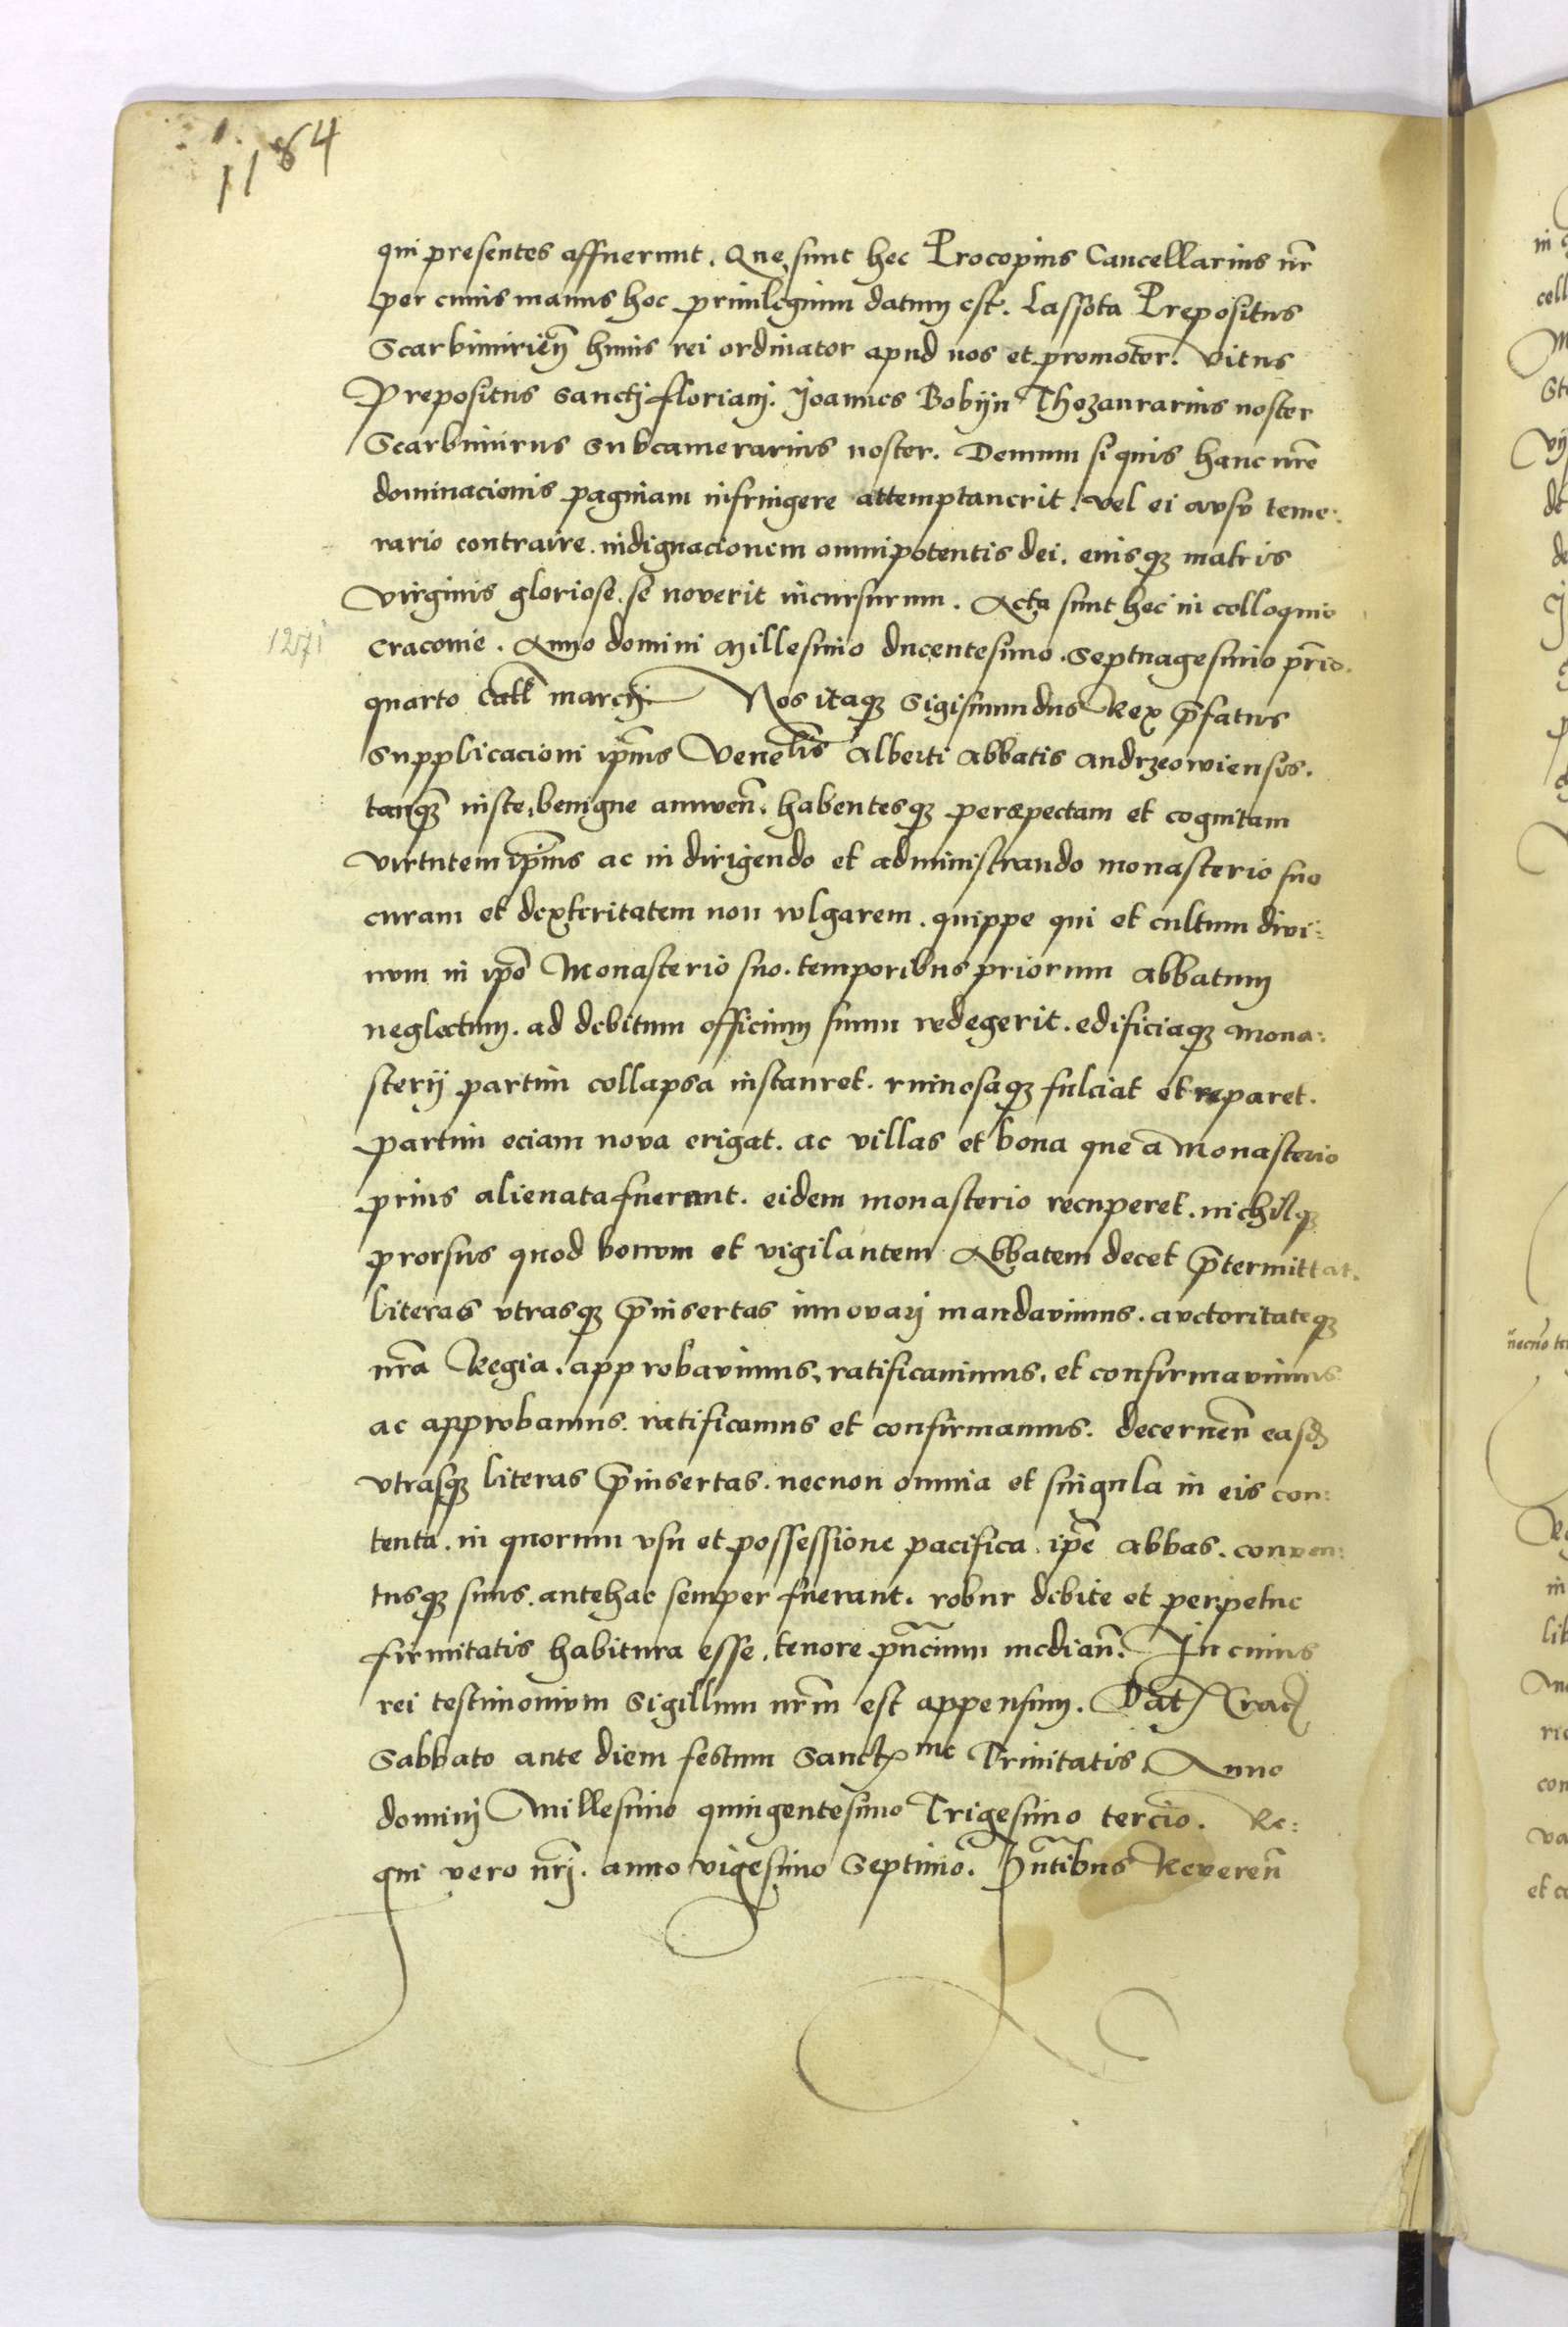 1184
qui presentes affuerunt. Que sunt hec Procopius Cancellarius nr̄
per cuius manus hoc priuilegium datum est. Lassota Prepositus
Scarbimirien̄ huius rei ordinator apud nos et promotor. Vitus
Prepositus sanctj floriani. Joannes Bobijn Thezaurarius noster
Scarbimirus Subcamerarius noster. Demum si quis hanc nr̄e
dominacionis paginam infringere attemptauerit. vel ei avsv teme:
rario contraire. indignacionem omnipotentis dei. eiusq3 matris
Virginis gloriose. se noverit incursurum. Acta sunt hec in colloquio
1271
Cracouie. Anno domini Millesimo ducentesimo. Septuagesimo pr̄io.
quarto Call̄ marcij. Nos itaq3 Sigismundus Rex p̄fatus
Supplicacioni ip̄ius Venelis Alberti Abbatis Andrzeowiensis.
tanq3 iuste, benigne annuen̄. habentesq3 perspectam et cognitam
virtutem ip̄ius ac in dirigendo et administrando monasterio suo
curam et dexteritatem non wlgarem. quippe qui et cultum divi:
nvm in ip̄o Monasterio suo. temporibus priorum Abbatum
neglectum. ad debitum officium suum redegerit. edificiaq3 mona:
sterij partim collapsa instauret. ruinosaq3 fulciat et reparet.
partim eciam nova erigat. ac villas et bona que a Monasterio
prius alienata fuerant. eidem monasterio recuperet. nichilq3
prorsus quod bonvm et vigilantem Abbatem decet p̄termittat.
literas vtrasq3 p̄insertas innovarj mandavimus. avctoritateq3
nr̄a Regia. approbavimus, ratificauimus, et confirmavimus
ac approbamus. ratificamus et confirmamus. decernen̄ easd̄
vtrasq3 literas p̄insertas. necnon omnia et singula in eis con:
tenta. in quorum vsu et possessione pacifica. ip̄e abbas. conven:
tusq3 suus. antehac semper fuerant. robur debite et perpetue
firmitatis habitura esse, tenore pn̄cium median̄. In cuius
rei testimonivm Sigillum nr̄m est appensum. Dat̄ Crac̄
Sabbato ante diem festum Sanct̄me Trinitatis, Anno
dominj Millesimo quingentesimo Trigesimo tercio. Re:
gni vero nr̄j. anno vigesimo Septimo. Pn̄tibus Reveren̄